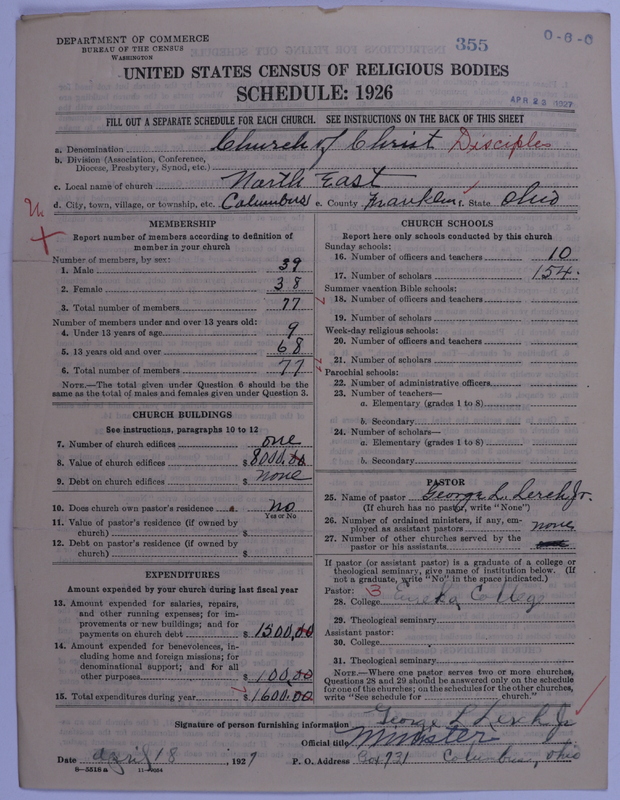 DEPARTMENT OF COMMERCE
BUREAU OF THE CENSUS
WASHINGTON
355
0-8-0
UNITED STATES CENSUS OF RELIGIOUS BODIES
SCHEDULE: 1926
APR 23 1927
FILL OUT A SEPARATE SCHEDULE FOR EACH CHURCH. SEE INSTRUCTIONS ON THE BACK OF THIS SHEET
a. Denomination Church of Christ Disciples
b. Division (Association, Conference, Diocese, Presbytery, Synod, etc.)
c. Local name of church North East
d. City, town, village, or township, etc. Columbus e. County Franklin f. State Ohio
MEMBERSHIP
Report number of members according to definition of
member in your church
Number of members, by sex:
1. Male 39
2. Female 38
3. Total number of members 77
Number of members under and over 13 years old:
4. Under 13 years of age 9
5. 13 years old and over 68
6. Total number of members 77
NOTE.—The total given under Question 6 should be
same as the total of males and females given under Question 3.
CHURCH BUILDINGS
See instructions, paragraphs 10 to 12
7. Number of church edifices one
8. Value of church edifices $8000.00
9. Debt on church edifices $ none
10. Does church own pastor's residence no
Yes or No
11. Value of pastor's residence (if owned by
church) $
12. Debt on pastor's residence (if owned by
church) $
EXPENDITURES
Amount expended by your church during last fiscal year
13. Amount expended for salaries, repairs,
and other running expenses; for im-
provements or new buildings; and for
payments on church debt $1500.00
14. Amount expended for benevolences, in-
cluding home and foreign missions; for
denominational support; and for all
other purposes $100.00
15. Total expenditures during year $1600.00
CHURCH SCHOOLS
Report here only schools conducted by this church
Sunday schools:
16. Number of officers and teachers 10
17. Number of scholars 154
Summer vacation Bible schools:
18. Number of officers and teachers
19. Number of scholars
Week-day religious schools:
20. Number of officers and teachers
21. Number of scholars
Parochial schools:
22. Number of administrative officers
23. Number of teachers—
a. Elementary (grades 1 to 8)
b. Secondary
24. Number of scholars—
a. Elementary (grades 1 to 8)
b. Secondary
PASTOR
25. Name of pastor George L. Lerch Jr.
(If church has no pastor, write "None")
26. Number of ordained ministers, if any, em-
ployed as assistant pastors none
27. Number of other churches served by the
pastor or his assistants
If pastor (or assistant pastor) is a graduate of a college or
theological seminary, give name of institution below. (If
not a graduate, write "No" in the space indicated.)
Pastor: 3
28. College Eureka College
29. Theological seminary
Assistant pastor:
30. College
31. Theological seminary
NOTE.—Where one pastor serves two or more churches,
Questions 28 and 29 should be answered only on the schedule
for one of the churches; on the schedules for the other churches,
write "See schedule for church."
Signature of person furnishing information George L Lerch Jr
Official title Minister
Date April 18, 1927 P. O. Address Box 721 Columbus, Ohio
8—5518 a